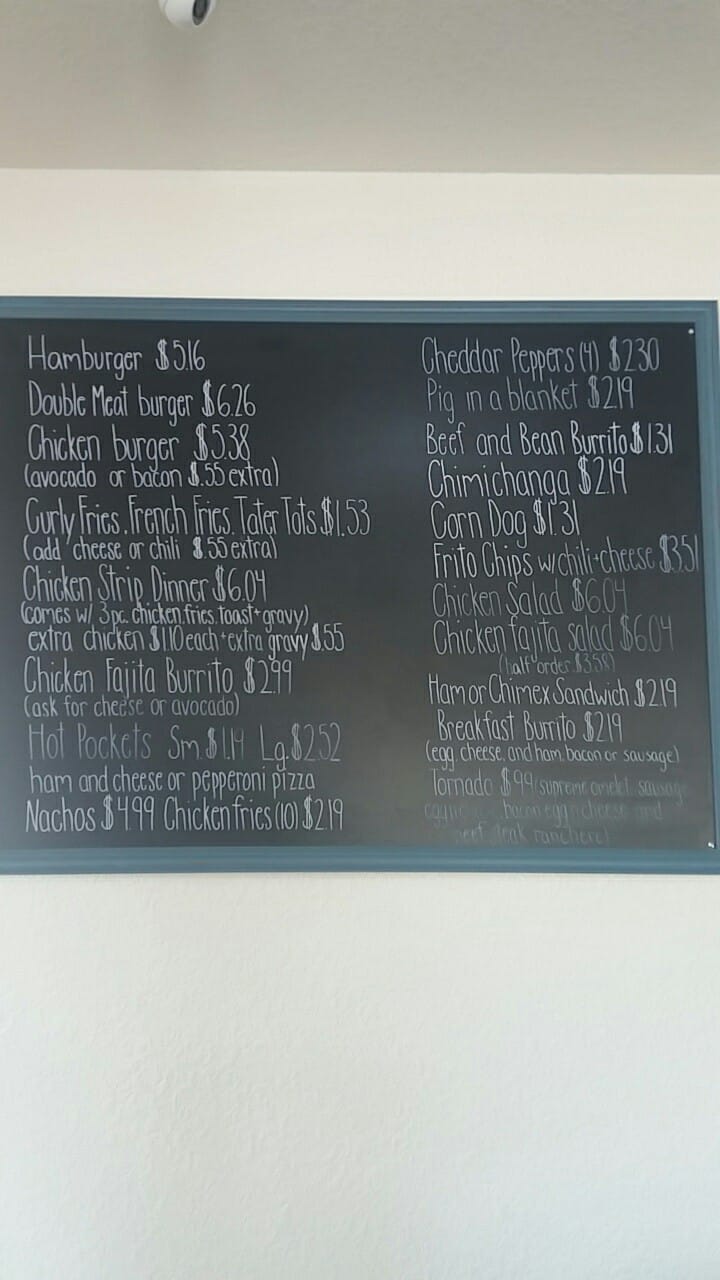 Hamburger $5.16
Double Meat burger $6.26
Chicken burger $5.38
(avocado or bacon $.55 extra)
Curly Fries, French Fries, Tater Tots $1.53
(add cheese or chili $.55 extra)
Chicken Strip Dinner $6.04
(comes w/ 3 pc. chicken, fries, toast + gravy)
extra chicken $1.10 each + extra gravy $.55
Chicken Fajita Burrito $2.99
(ask for cheese or avocado)
Hot Pockets Sm. $1.14 Lg. $2.52
ham and cheese or pepperoni pizza
Nachos $4.99 Chicken fries (10) $2.19
Cheddar Peppers (4) $2.30
Pig in a blanket $2.19
Beef and Bean Burrito $1.31
Chimichanga $2.19
Corn Dog $1.31
Frito Chips w/chili+cheese $3.51
Chicken Salad $6.04
Chicken fajita salad $6.04
(half order $3.58)
Ham or Chimex Sandwich $2.19
Breakfast Burrito $2.19
(egg, cheese, and ham, bacon or sausage)
Tornado $.99 (supreme omelet, sausage
bacon egg cheese and
ranchero)